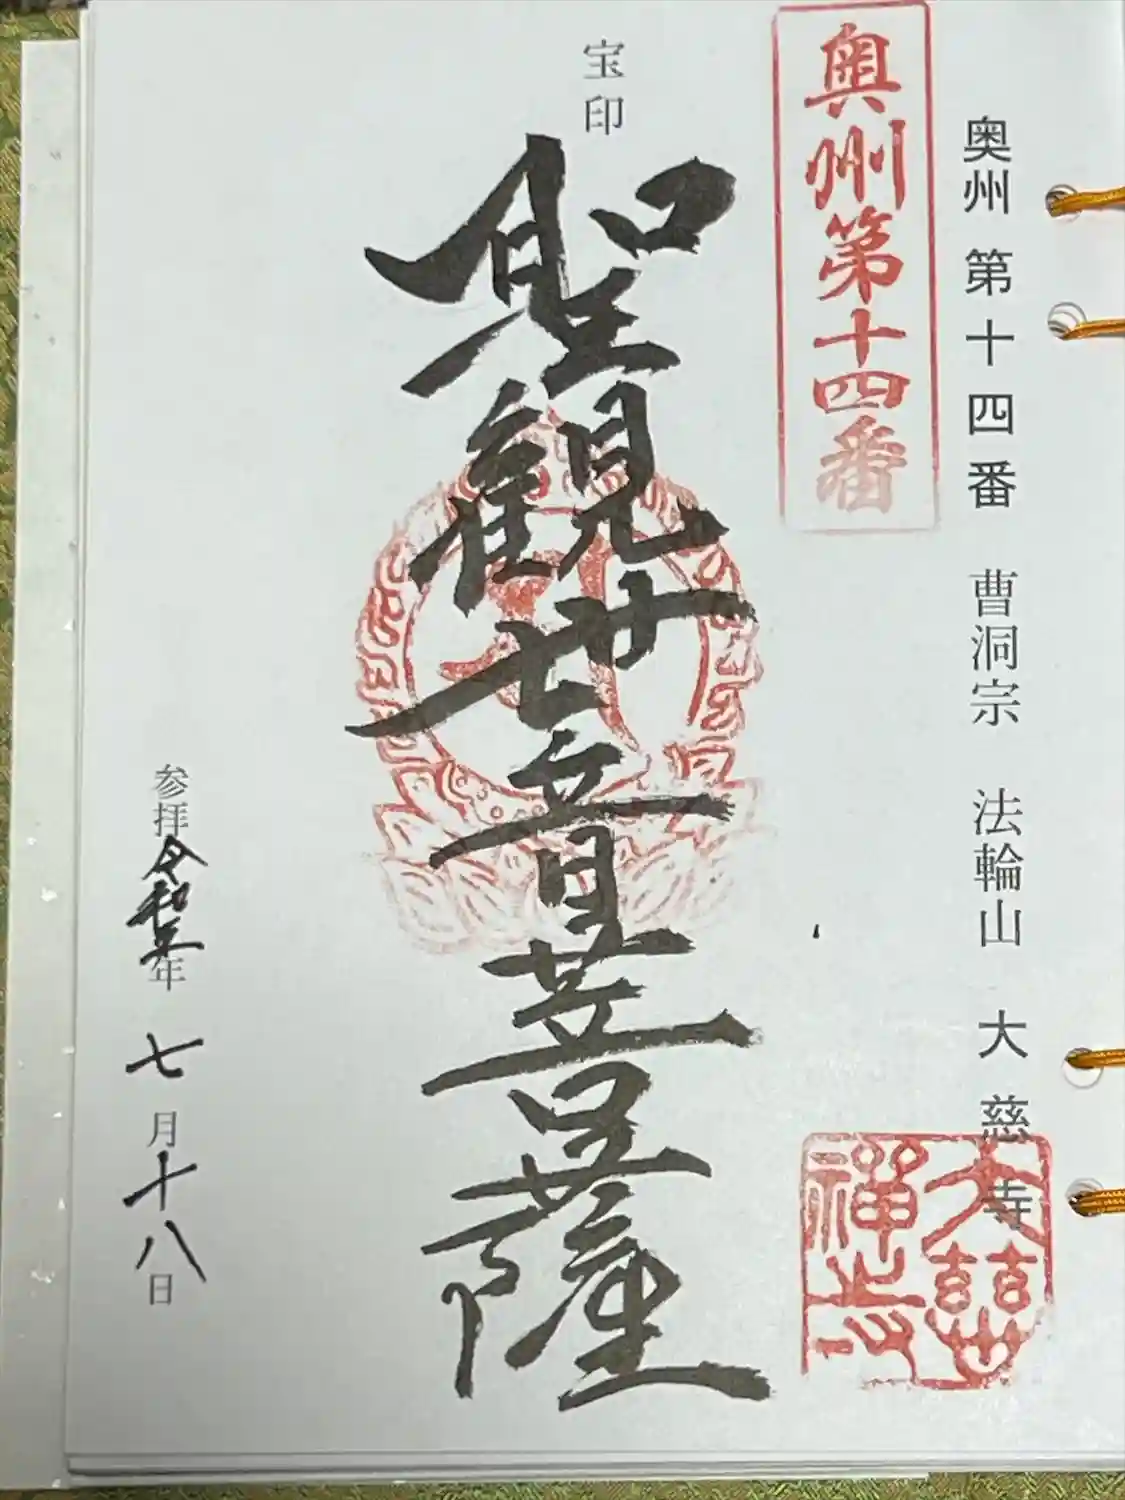 奥州第十四番 曹洞宗 法輪山 大慈寺
奥州第十四番
宝印
聖観世音菩薩
参拝令和五年七月十八日